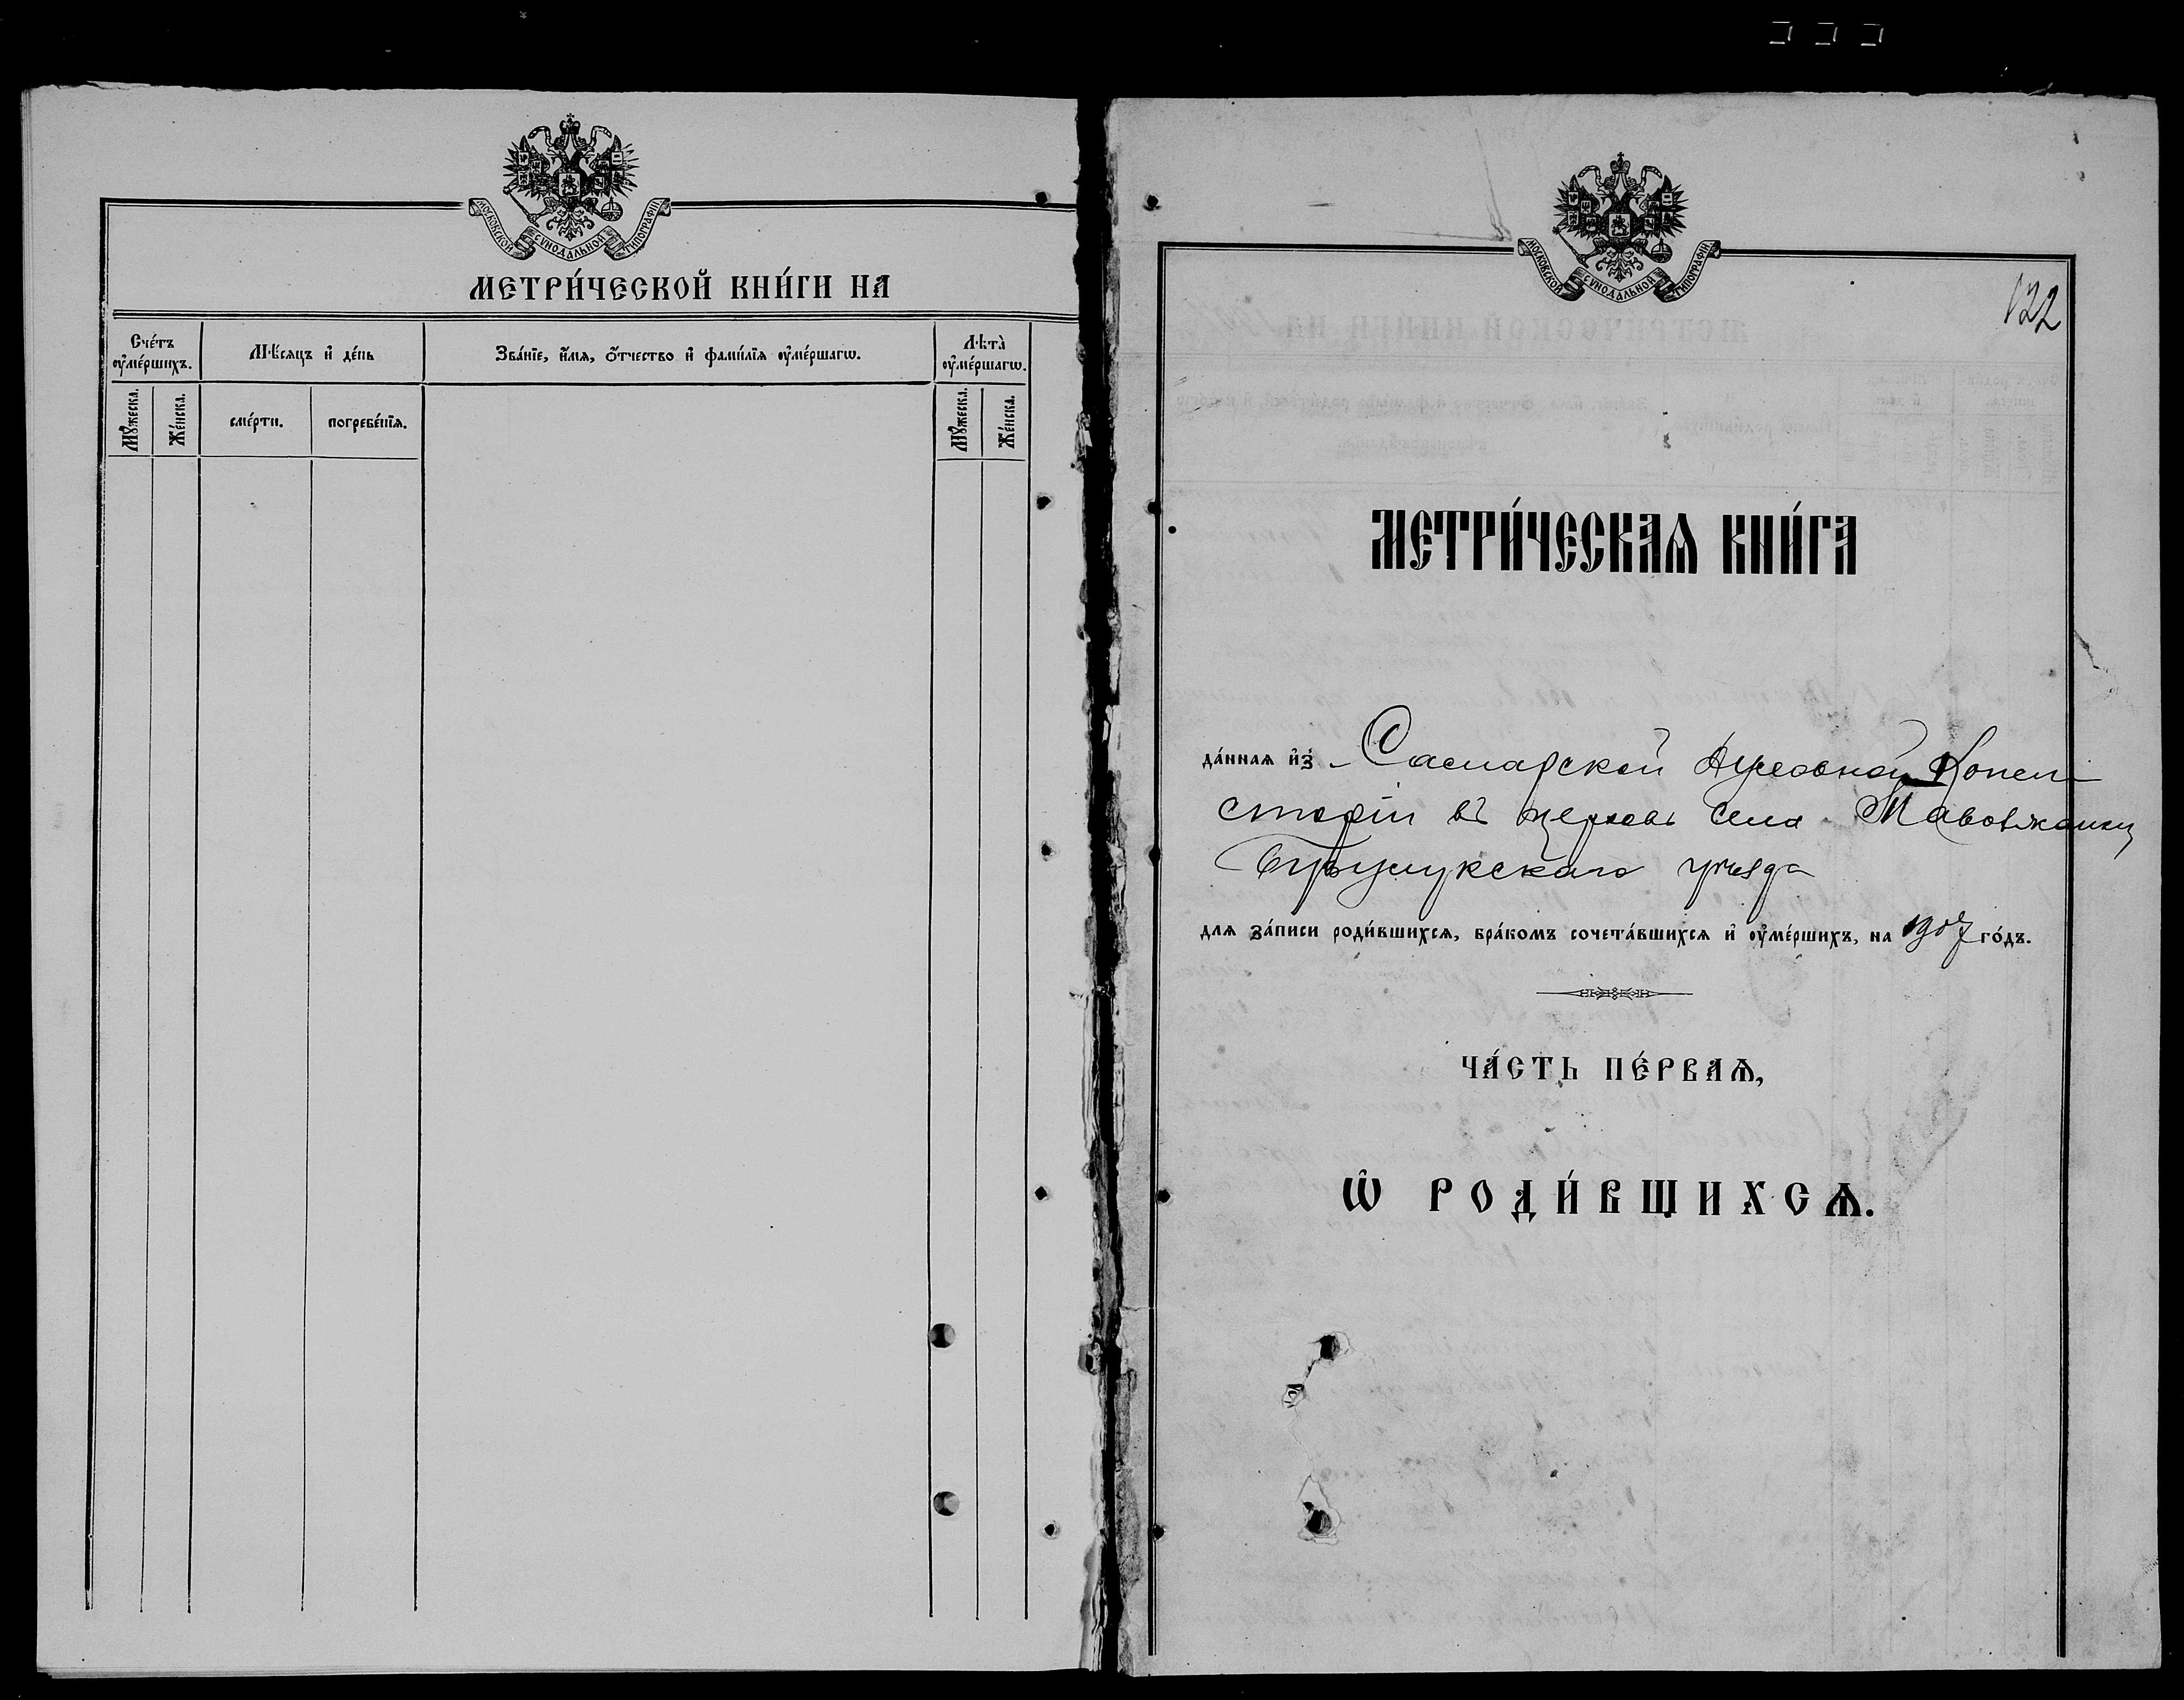 МОСКОВСКОЙ СѴНОДАЛЬНОЙ ТИПОГРАФІИ
МЕТРИ́ЧЕСКОЙ КНИ́ГИ НА
Сче́тъ ᲂу҆ме́ршихъ.
Мѣ́сяцъ и҆ де́нь
Зва́нїе, и҆́мя, ѻ҆́тчество и҆ фами́лїя ᲂу҆ме́ршагѡ.
Лѣ̀та ᲂу҆ме́ршагѡ.
Мꙋ́жеска.
Же́нска.
сме́рти.
погребе́нїя.
Мꙋ́жеска.
Же́нска.
МОСКОВСКОЙ СѴНОДАЛЬНОЙ ТИПОГРАФІИ
122
МЕТРИ́ЧЕСКАѦ КНИ́ГА
да́нная и҆з̾ Самарской Духовной Консис
торіи въ церковь села Таволжанки
Бузулукскаго уѣзда
для за́писи роди́вшихся, бра́комъ сочета́вшихся и҆ ᲂу҆ме́ршихъ, на 1907 го́дъ.
ЧА́СТЬ ПЕ́РВАѦ,
Ѽ РОДИ́ВШИХСѦ.